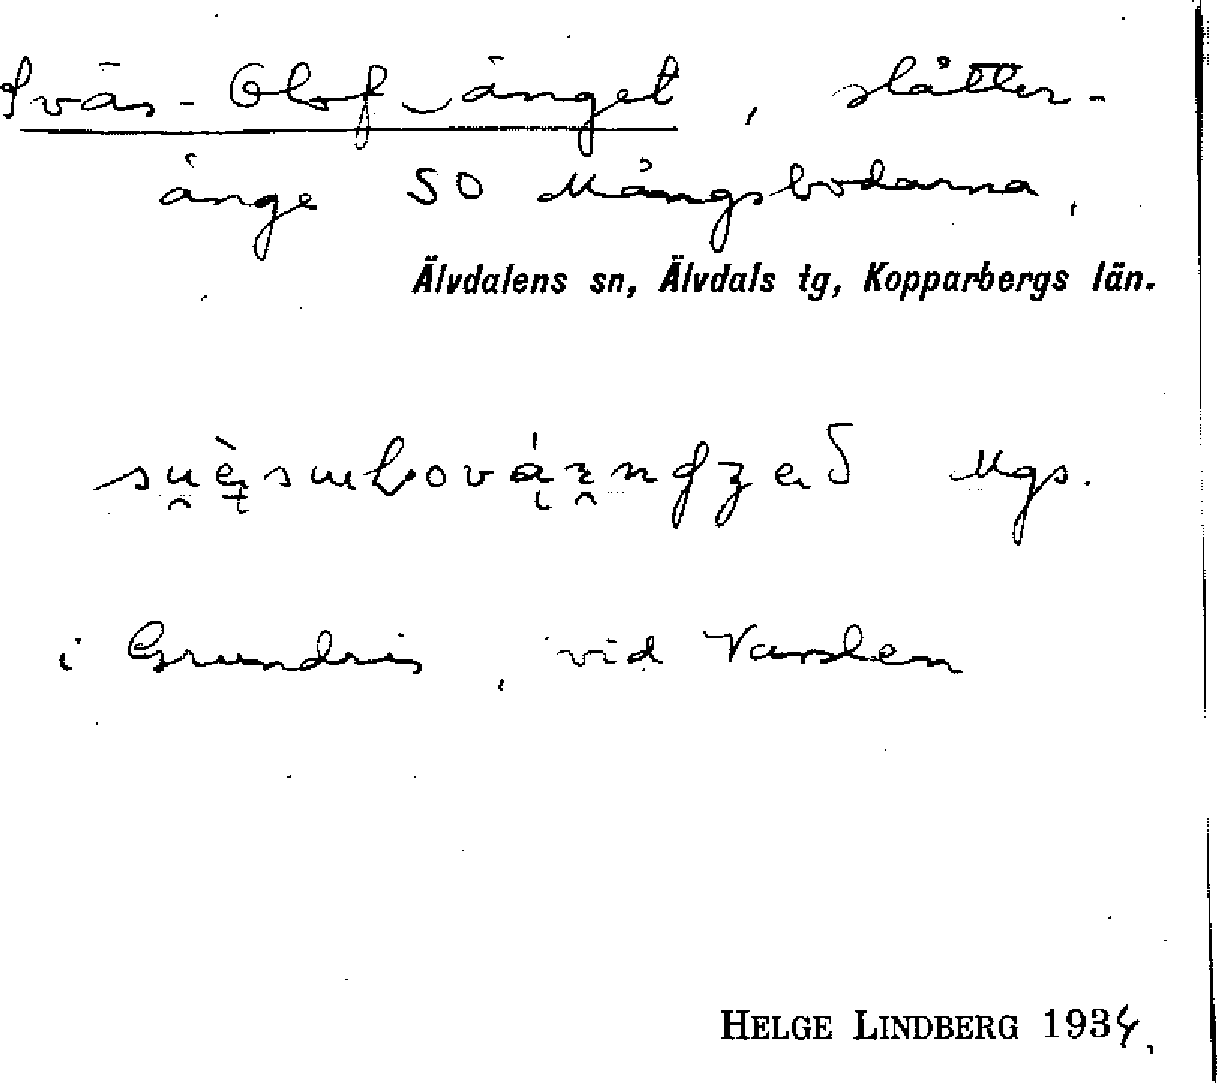 Sväs-Olof-änget, slåtter-
änge SO Mångsbodarna,
Älvdalens sn, Älvdals tg, Kopparbergs län.
Mgs.
i Grundris, vid Vanslen
HELGE LINDBERG 1934.